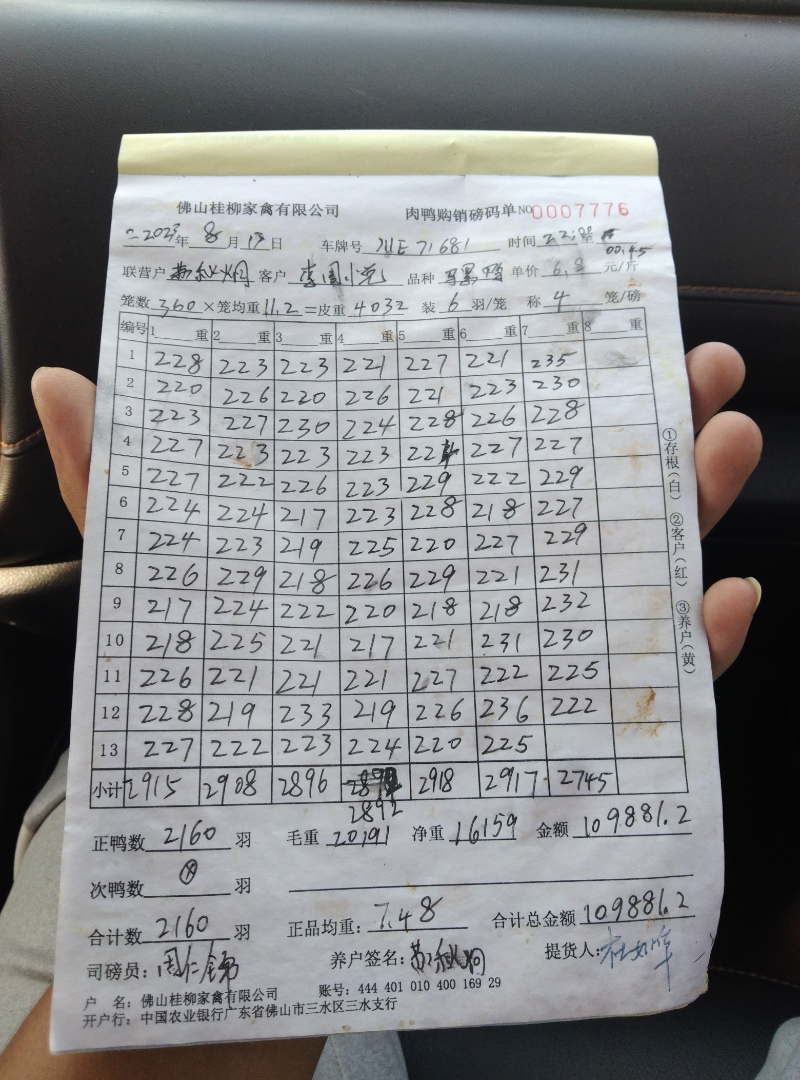 佛山桂柳家禽有限公司 肉鸭购销磅码单 NO 0007776
二2023年 8月17日 车牌号 川E71681 时间 22:00至 00:45
联营户 客户 品种 单价 6.8 元/斤
笼数 360 ×笼均重 11.2 =皮重 4032 装 6 羽/笼 称 4 笼/磅
编号 1 重 2 重 3 重 4 重 5 重 6 重 7 重 8 重
1 228 223 223 221 227 221 235
2 220 226 220 226 221 223 230
3 223 227 230 224 228 226 228
4 227 223 223 223 224 227 227
5 227 222 226 223 229 222 229
6 224 224 217 223 228 218 227
7 224 223 219 225 220 227 229
8 226 229 218 226 229 221 231
9 217 224 222 220 218 218 232
10 218 225 221 217 221 231 230
11 226 221 221 221 227 222 225
12 228 219 233 219 226 236 222
13 227 222 223 224 220 225
小计 2915 2908 2896 2892 2918 2917 2745
正鸭数 2160 羽 毛重 20191 净重 16159 金额 109881.2
次鸭数 羽
合计数 2160 羽 正品均重: 7.48 合计总金额 109881.2
司磅员: 周仁锦 养户签名: 提货人:
户 名: 佛山桂柳家禽有限公司 账号: 444 401 010 400 169 29
开户行: 中国农业银行广东省佛山市三水区三水支行
①存根(白) ②客户(红) ③养户(黄)